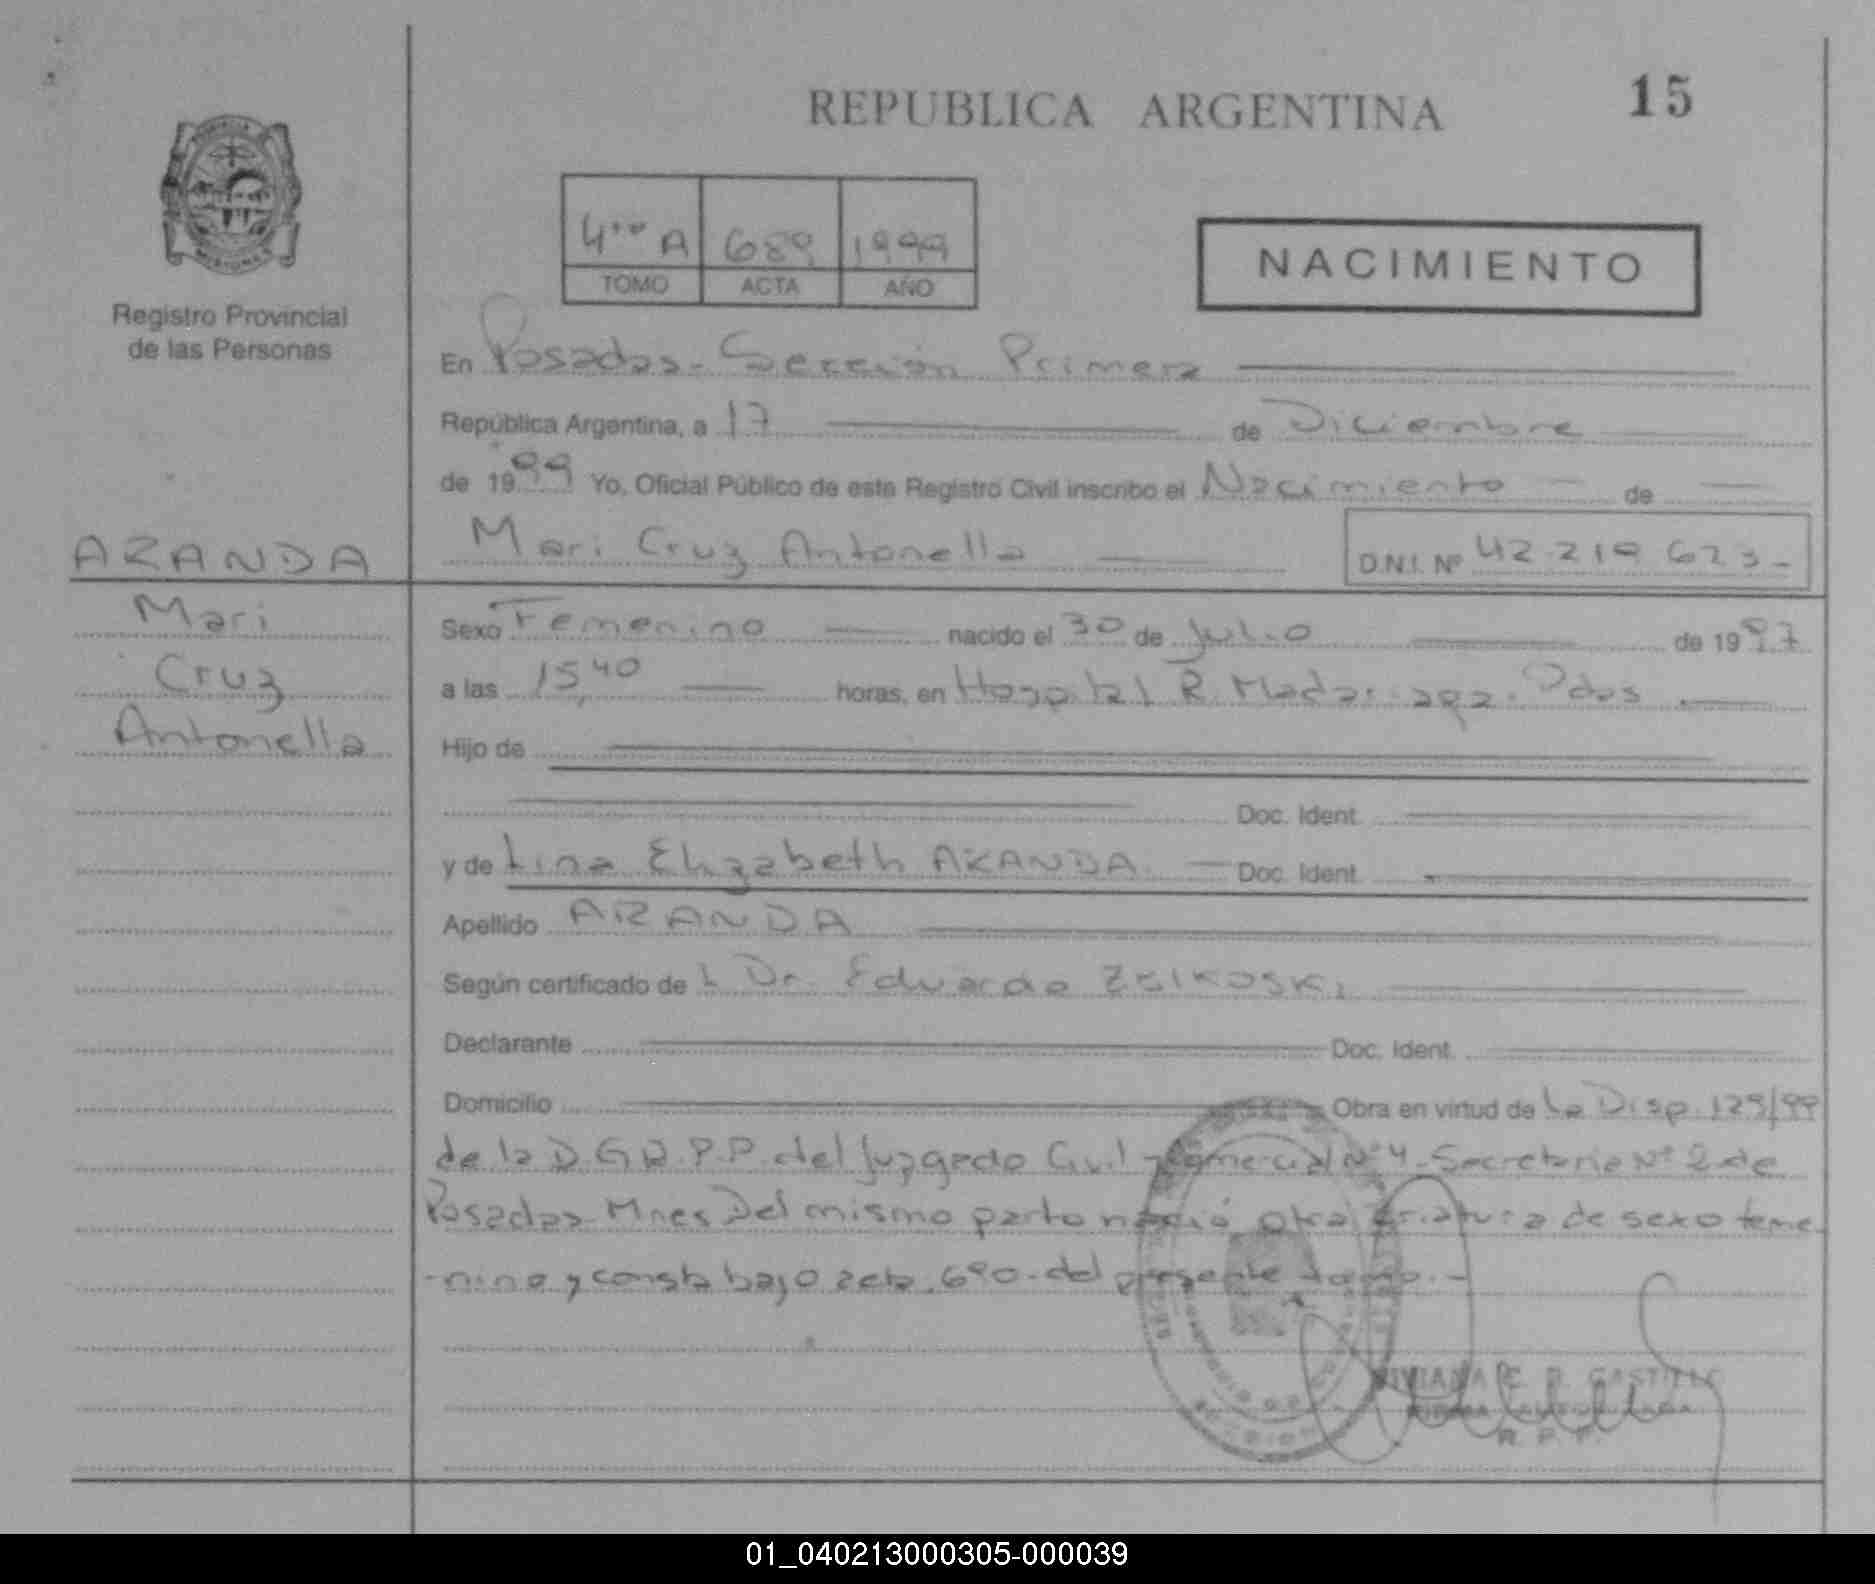 REPUBLICA ARGENTINA
15
PROVINCIA
MISIONES
Registro Provincial
de las Personas
4to A 689 1999
TOMO ACTA AÑO
NACIMIENTO
En Posadas - Sección Primera
República Argentina, a 17 de Diciembre
de 1999 Yo, Oficial Público de este Registro Civil inscribo el Nacimiento de
ARANDA
Mari Cruz Antonella
D.N.I. Nº 42.219.623-
Mari
Cruz
Antonella
Sexo Femenino nacido el 30 de Julio de 1997
a las 15,40 horas, en Hospital R. Madariaga. Pdas
Hijo de
Doc. Ident.
y de Lina Elizabeth ARANDA Doc. Ident.
Apellido ARANDA
Según certificado de l Dr. Eduardo
Declarante Doc. Ident.
Domicilio Obra en virtud de La Disp. 129/99
de la D.G.R.P.P. del Juzgado Civil y Comercial Nº 4 - Secretaria Nº 2 de
Posadas - Mnes Del mismo parto nació otra criatura de sexo feme-
-nino y consta bajo acta 690 del presente tomo.-
VIVIANA E. R. CASTILLO
R. P. P.
01_040213000305-000039